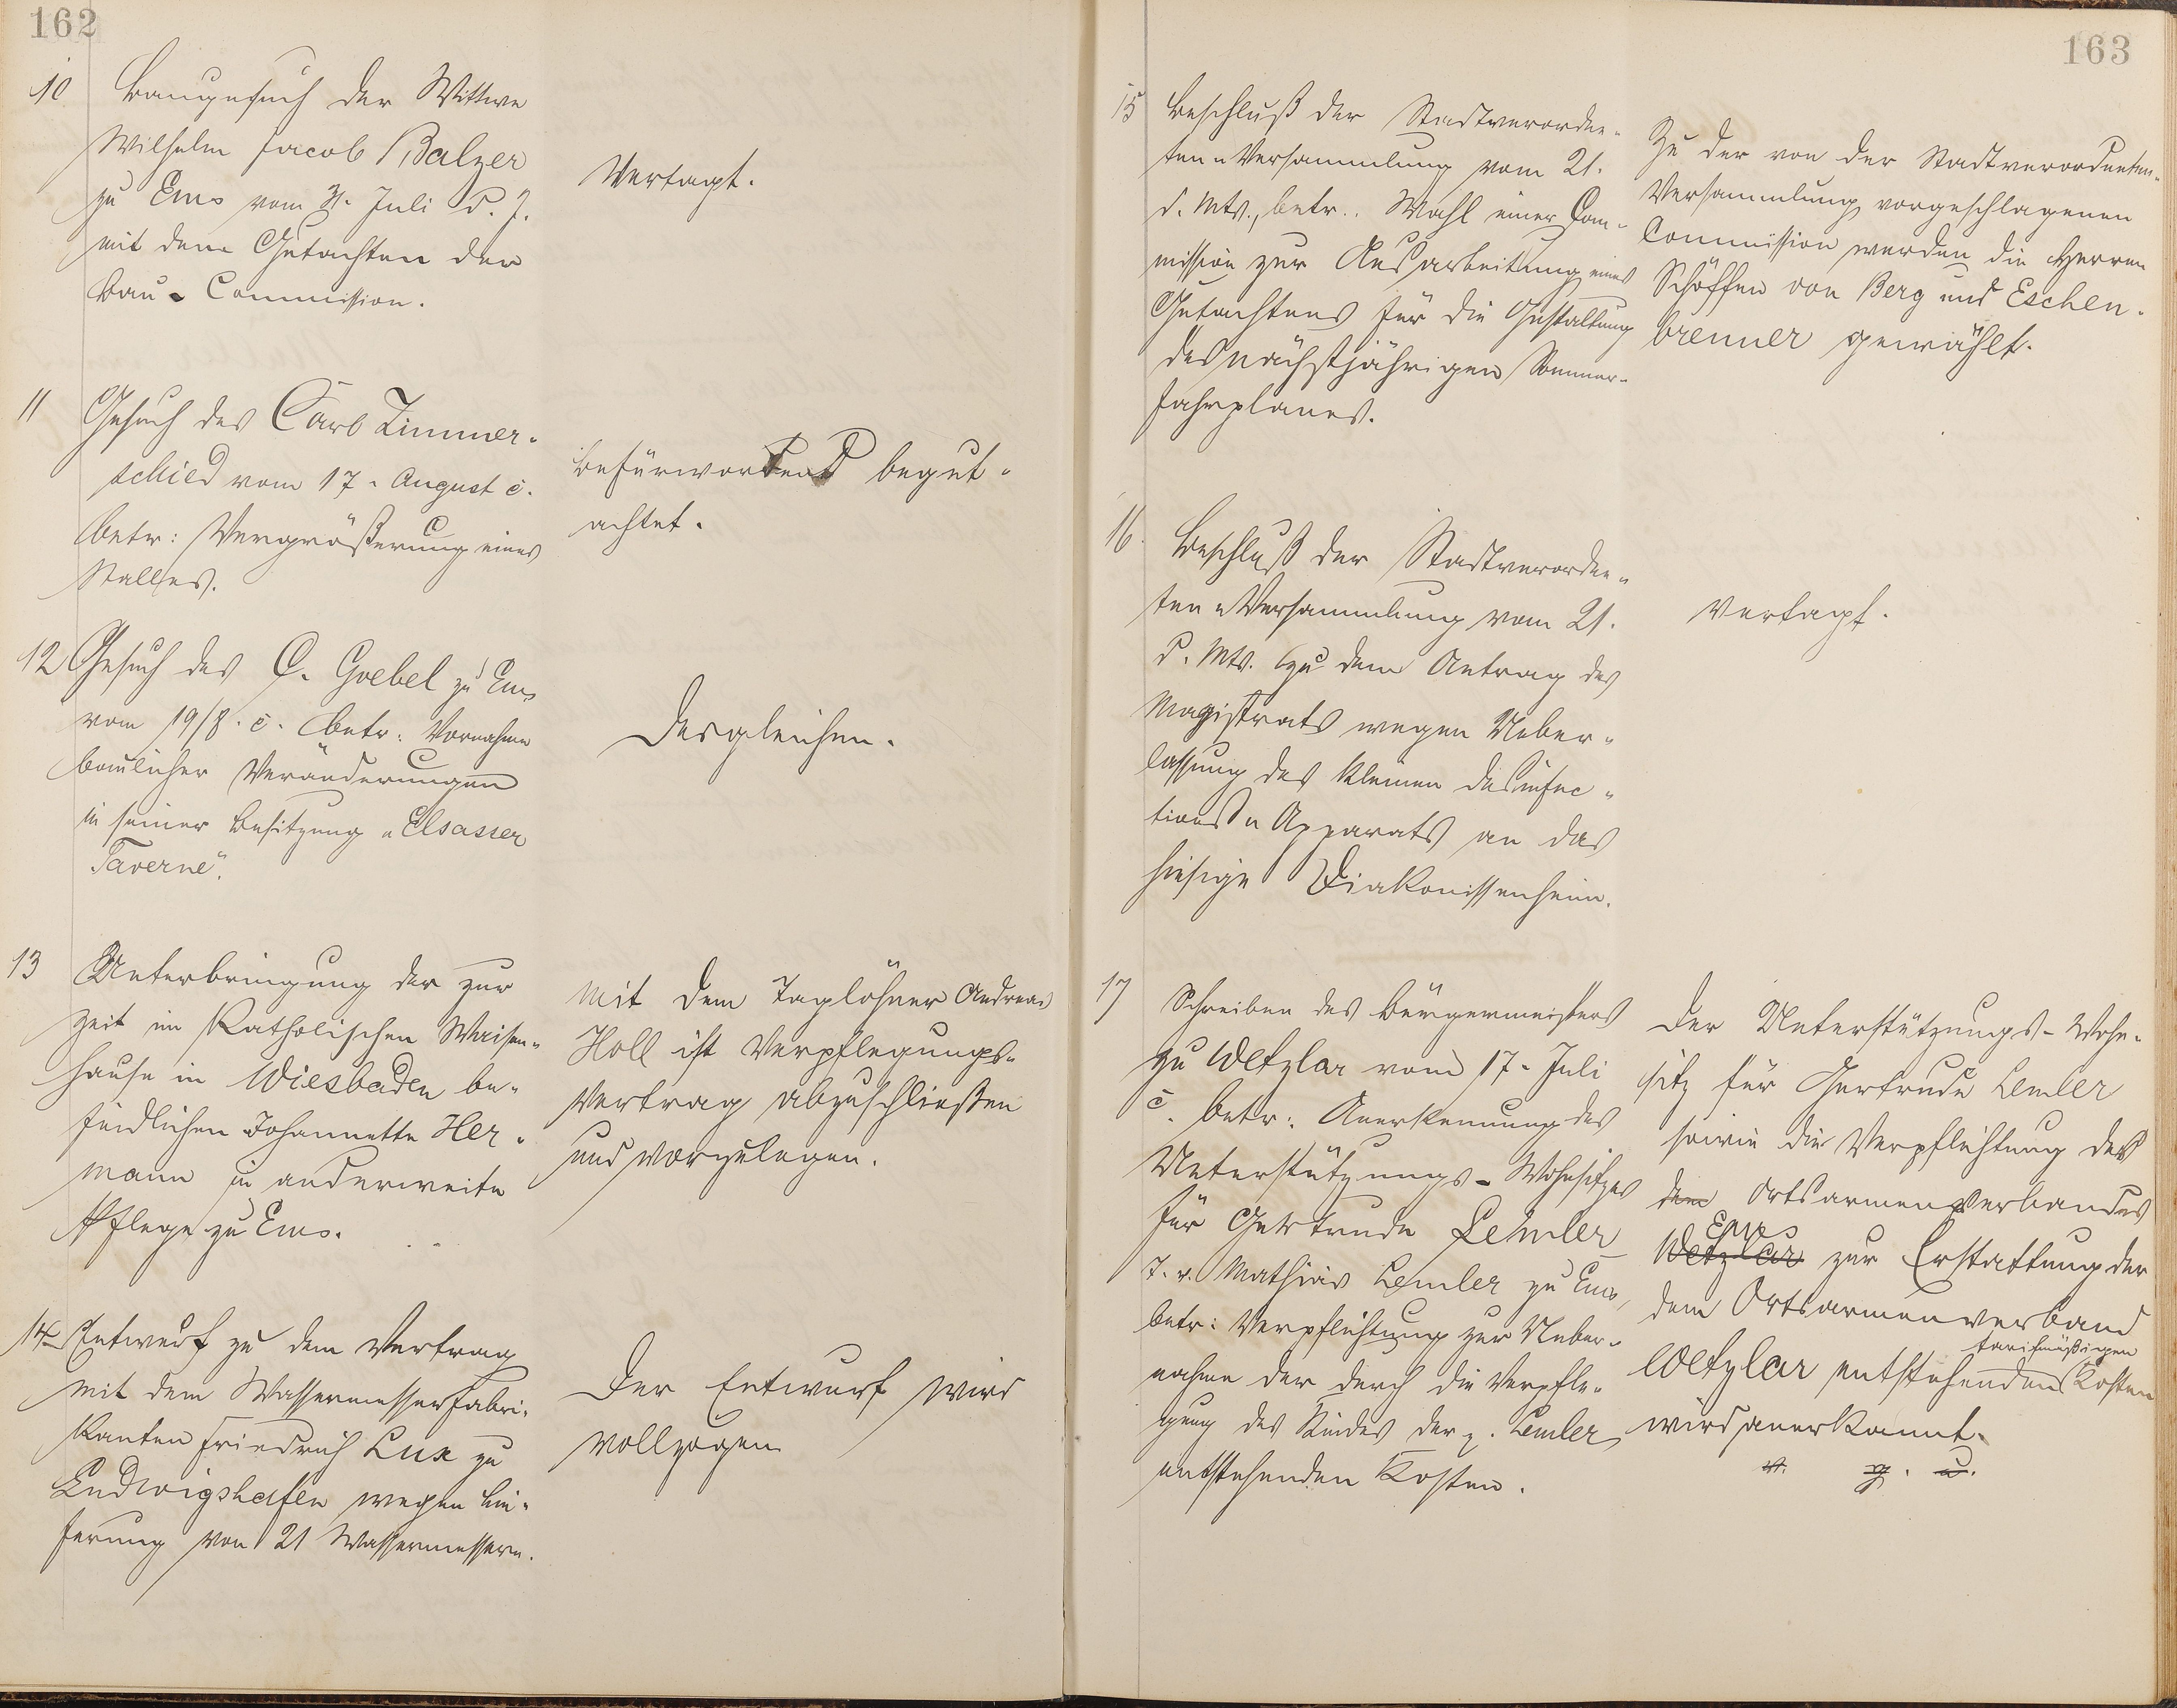 162
10 Baugesuch der Wittwe
Wilhelm Jacob Balzer
zu Ems vom 31. Juli d. J.
mit dem Gutachten der
Bau-Commission.
Vertagt.
11 Gesuch des Carl Zimmer-
schied vom 17. August c.
betr: Vergrößerung eines
Stalles.
Befürwortend begut-
achtet.
12 Gesuch des C. Goebel zu Ems
vom 19/8. c. betr: Vornahme
baulicher Veränderungen
in seiner Besitzung "Elsasser
Taverne".
Desgleichen.
13 Unterbringung der zur
Zeit im Katholischen Waisen-
hause in Wiesbaden be-
findlichen Johannette Her-
mann in anderweite
Pflege zu Ems.
Mit dem Taglöhner Andreas
Holl ist Verpflegungs-
Vertrag abzuschließen
und vorzulegen.
14 Entwurf zu dem Vertrag
mit dem Wassermesserfabri-
kanten Friedrich Lux zu
Ludwigshafen wegen Lie-
ferung von 21 Wassermessern.
Der Entwurf wird
vollzogen
163
15 Beschluß der Stadtverordne-
ten-Versammlung vom 21.
d. Mts., betr.. Wahl einer Com-
mission zur Ausarbeitung eines
Gutachtens für die Gestaltung
des nächstjährigen Sommer-
fahrplanes.
Zu der von der Stadtverordneten-
Versammlung vorgeschlagenen
Commission werden die Herren
Schöffen von Berg und Eschen-
brenner gewählt.
16. Beschluß der Stadtverordne-
ten-Versammlung vom 21.
d. Mts. zu dem Antrag des
Magistrats wegen Ueber-
lassung des kleinen Desinfec-
tions-Apparats an das
hiesige Diakonissenheim.
Vertagt.
17 Schreiben des Bürgermeisters
zu Wetzlar vom 17. Juli
c. betr: Anerkennung des
Unterstützungs-Wohnsitzes
für Gertrude Lemler
T. v. Mathias Lemler zu Ems,
betr: Verpflichtung zur Ueber-
nahme der durch die Verpfle-
gung des Kindes der p. Lemler
entstehenden Kosten.
Der Unterstützungs-Wohn-
sitz für Gertrude Lemler
sowie die Verpflichtung des
dem Ortsarmenverbandes
Ems
Wetzlar zur Erstattung der
dem Ortsarmenverband
tarifmäßigen
Wetzlar entstehenden Kosten
wird anerkannt.
v. g. u.